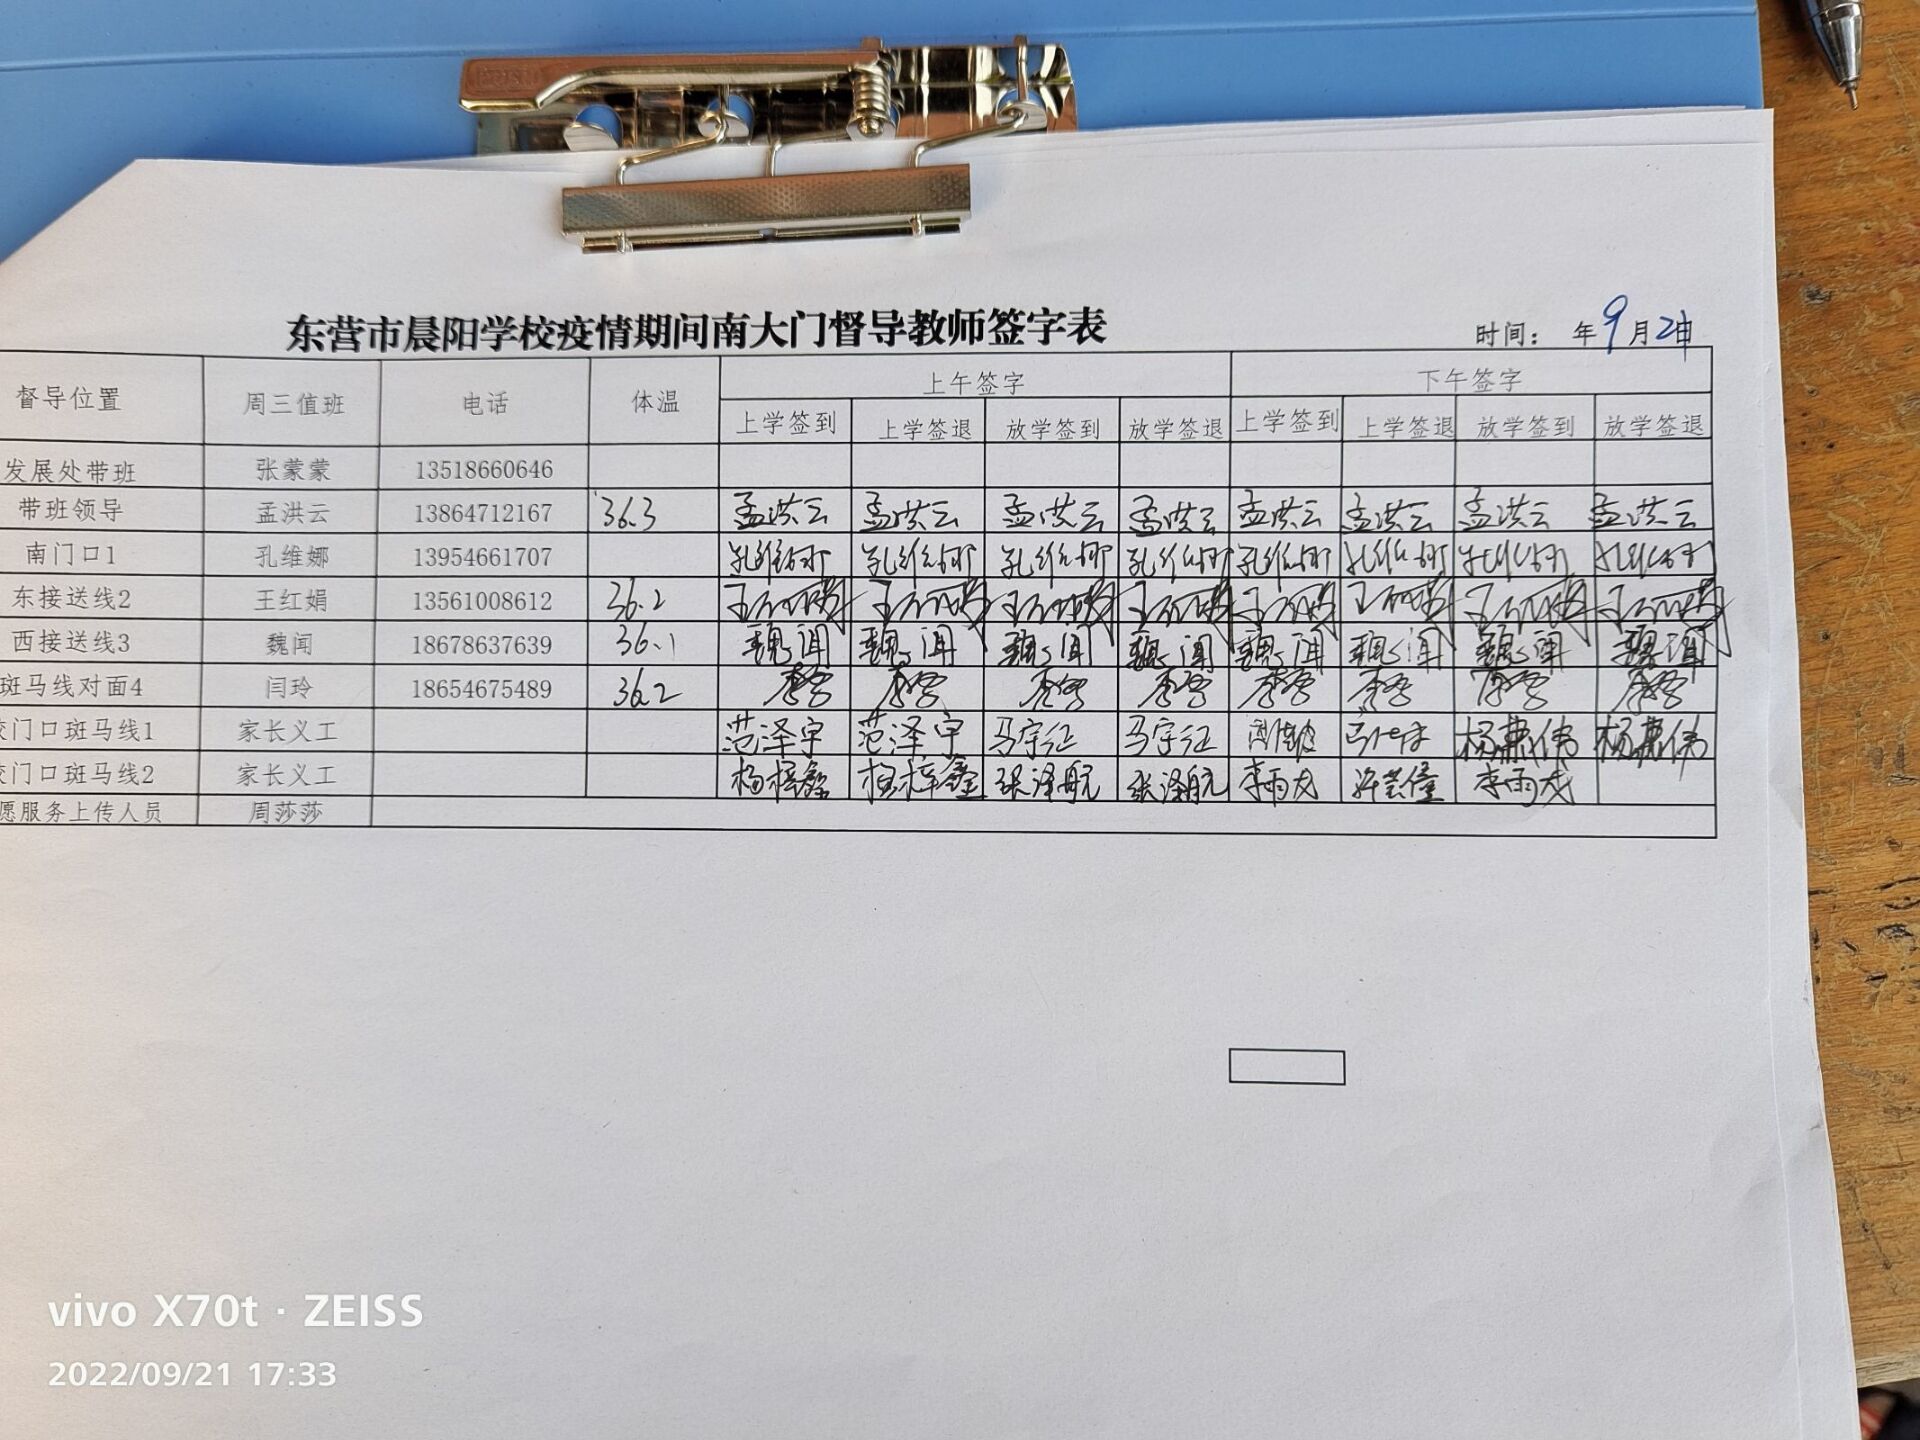 东营市晨阳学校疫情期间南大门督导教师签字表
时间： 年9月21日
督导位置 周三值班 电话 体温 上午签字 下午签字
上学签到 上学签退 放学签到 放学签退 上学签到 上学签退 放学签到 放学签退
发展处带班 张蒙蒙 13518660646
带班领导 孟洪云 13864712167 36.3 孟洪云 孟洪云 孟洪云 孟洪云 孟洪云 孟洪云 孟洪云 孟洪云
南门口1 孔维娜 13954661707 孔维娜 孔维娜 孔维娜 孔维娜 孔维娜 孔维娜 孔维娜 孔维娜
东接送线2 王红娟 13561008612 36.2
西接送线3 魏闻 18678637639 36.1 魏闻 魏闻 魏闻 魏闻 魏闻 魏闻 魏闻 魏闻
斑马线对面4 闫玲 18654675489 36.2
门口斑马线1 家长义工 范泽宇 范泽宇 马宇征 马宇征
门口斑马线2 家长义工 杨梓鑫 杨梓鑫 张泽航 张泽航 李雨成 李雨成
愿服务上传人员 周莎莎
vivo X70t · ZEISS
2022/09/21 17:33